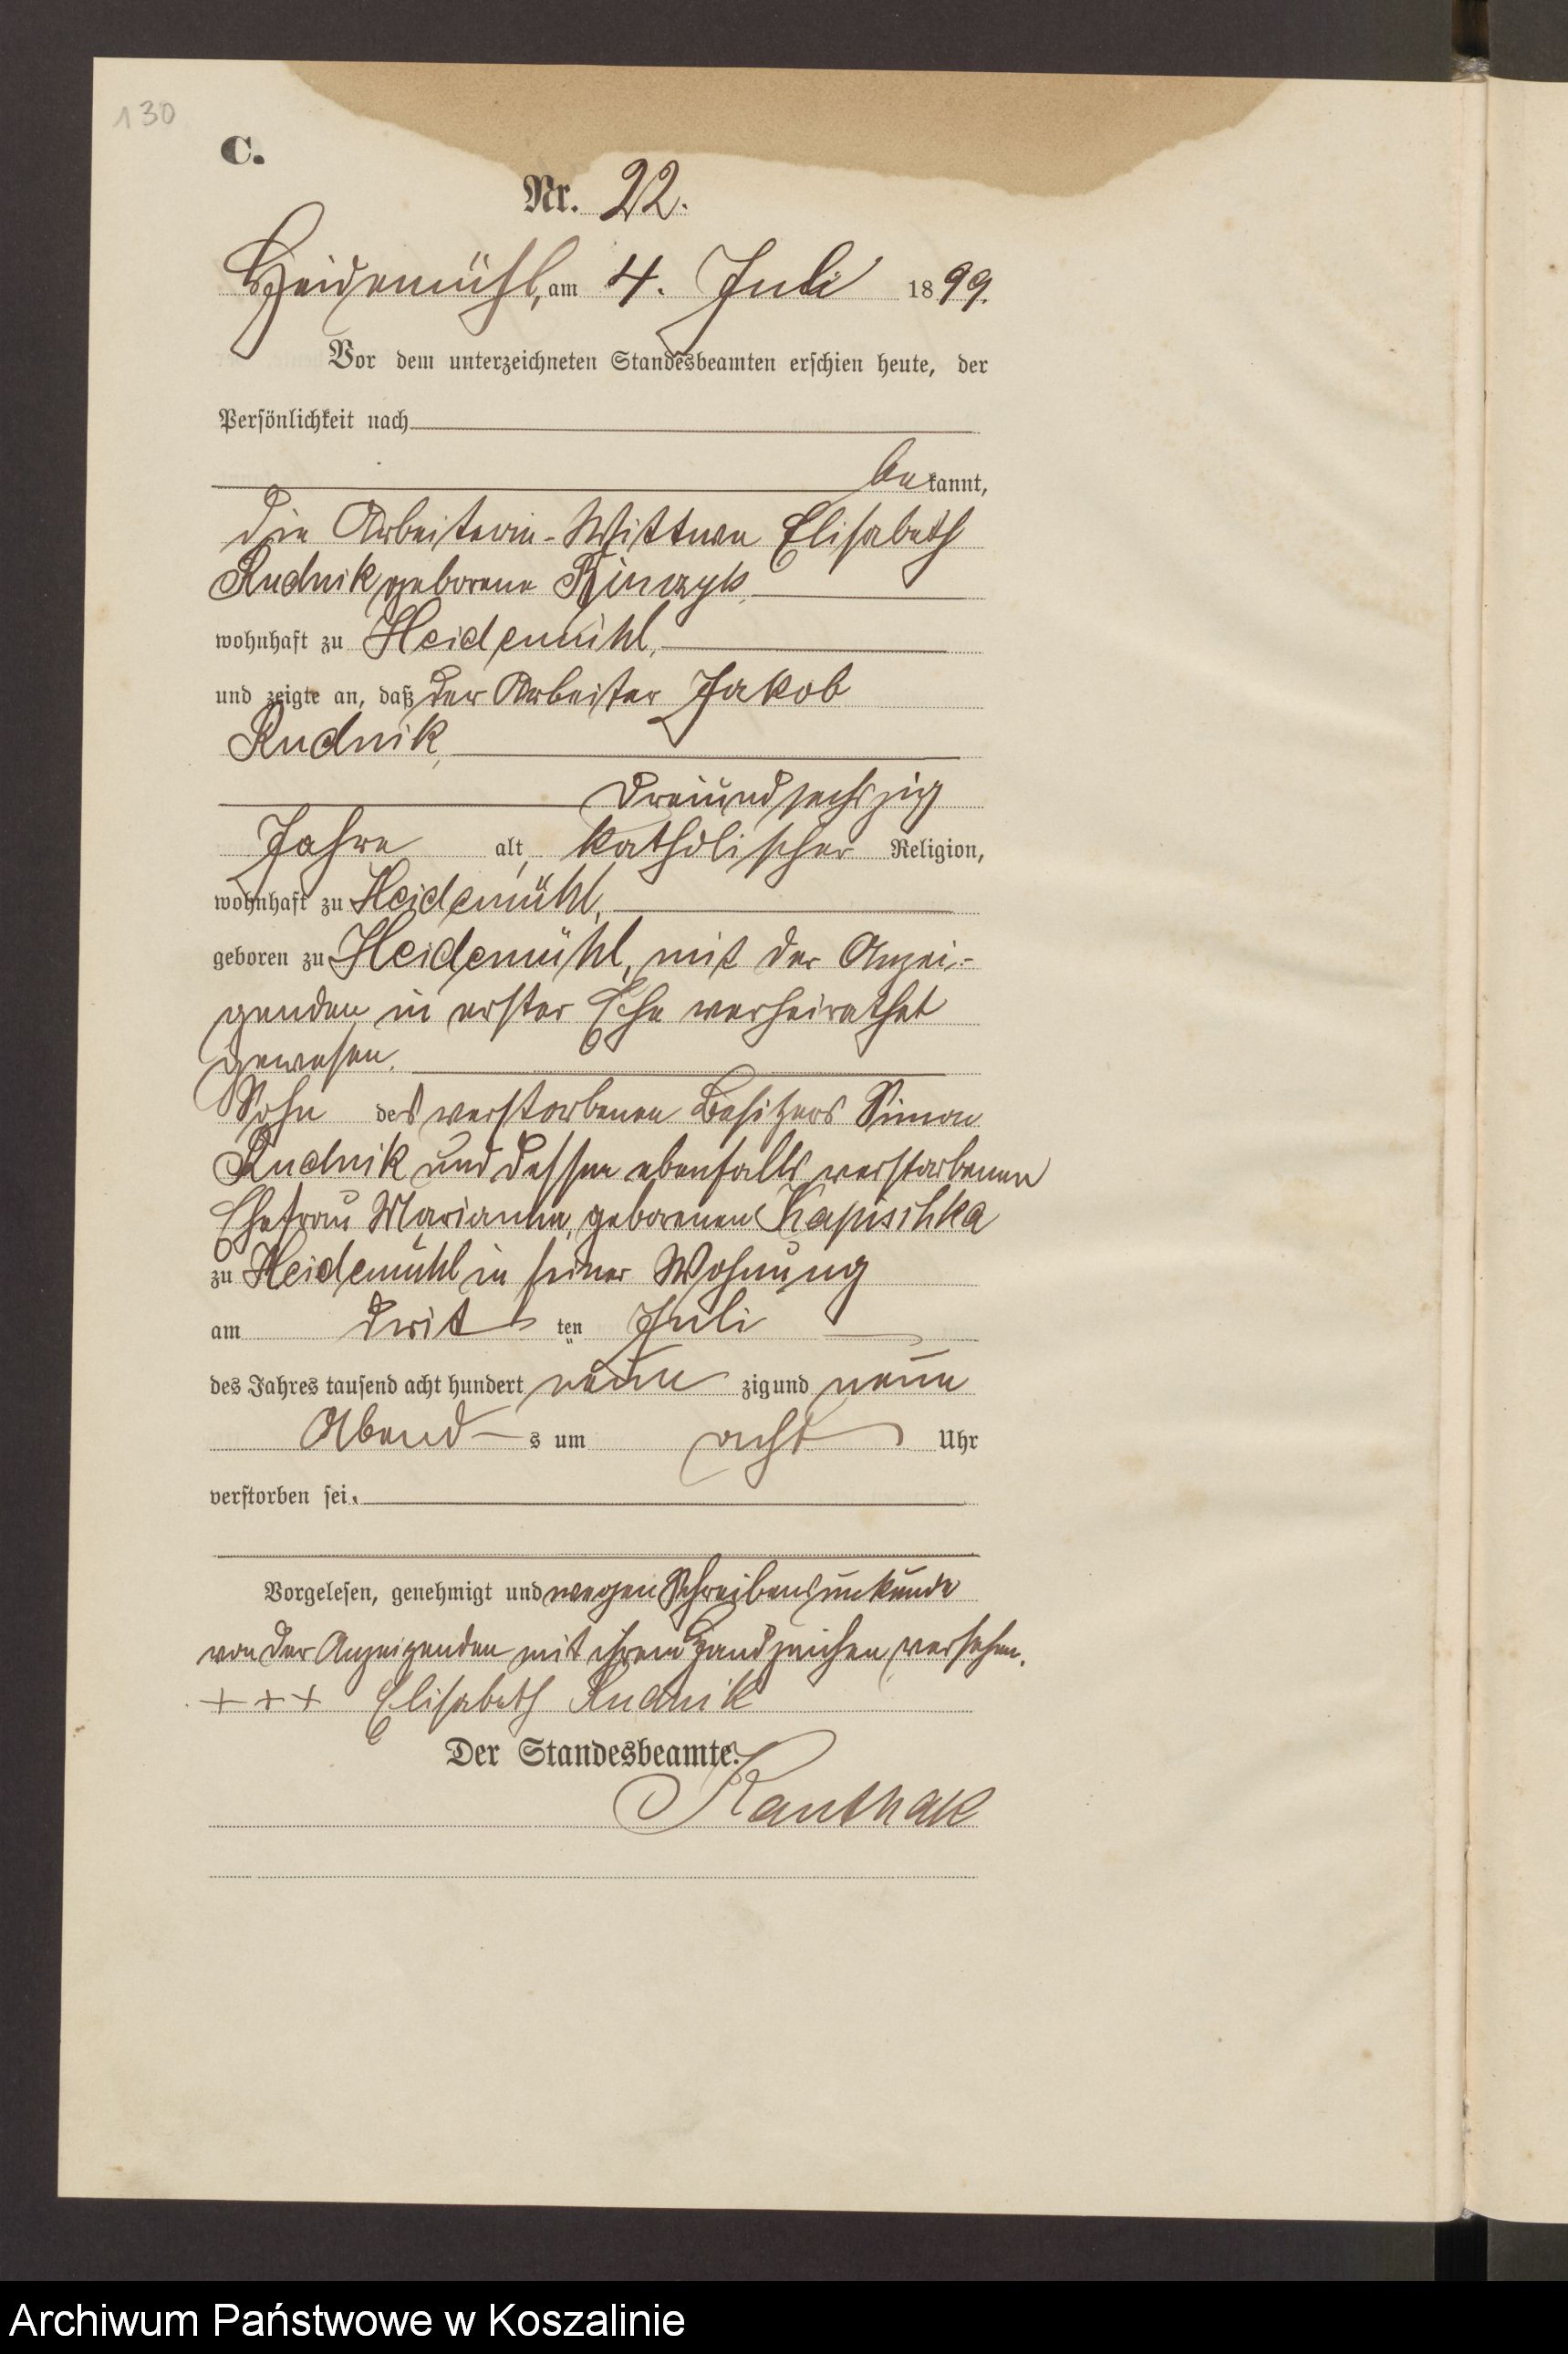 130
C.
Nr. 22.
Heidemühl, am 4. Juli 1899.
Vor dem unterzeichneten Standesbeamten erschien heute, der
Persönlichkeit nach
bekannt,
die Arbeiterin-Wittwe Elisabeth
Rudnik geborene
wohnhaft zu Heidemühl,
und zeigte an, daß der Arbeiter Jakob
Rudnik,
dreiundsechszig
Jahre alt, katholischer Religion,
wohnhaft zu Heidemühl,
geboren zu Heidemühl, mit der Anzei-
genden in erster Ehe verheirathet
gewesen.
Sohn des verstorbenen Besitzers Simon
Rudnik und dessen ebenfalls verstorbenen
Ehefrau Marianna, geborenen Kapischka
zu Heidemühl in seiner Wohnung
am dritten Juli
des Jahres tausend acht hundert neunzig und neun
Abends um acht Uhr
verstorben sei.
Vorgelesen, genehmigt und wegen Schreibensunkunde
von der Anzeigenden mit ihrem Handzeichen versehen.
+ + + Elisabeth Rudnik
Der Standesbeamte.
Kanthak
Archiwum Państwowe w Koszalinie